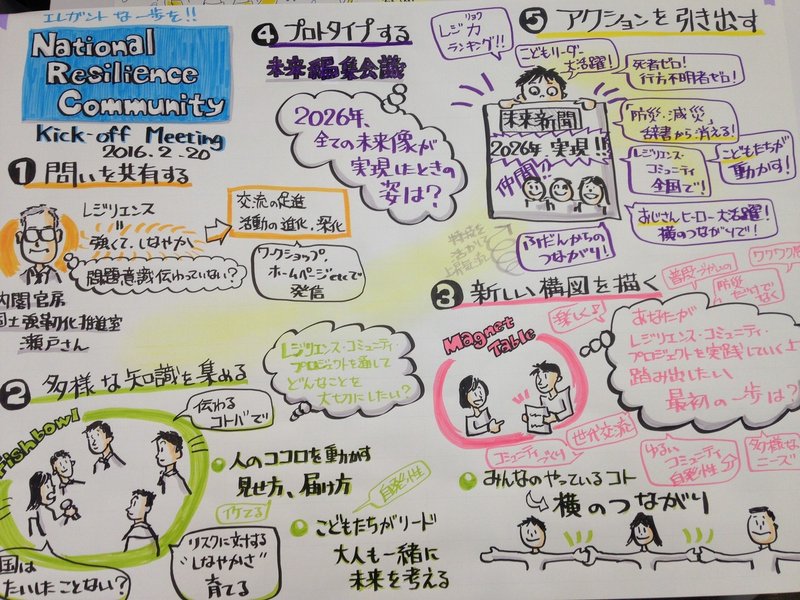 エレガントな一歩を!!
National
Resilience
Community
Kick-off Meeting
2016.2.20
❶ 問いを共有する
レジリエンス
強くて、しなやか
問題意識伝わっていない?
内閣官房
国土強靭化推進室
瀬戸さん
交流の促進
活動の進化、深化
ワークショップ、
ホームページetcで
発信
❷ 多様な知識を集める
Fishbowl
伝わる
コトバで
レジリエンス・コミュニティ・
プロジェクトを通して
どんなことを
大切にしたい?
人のココロを動かす
見せ方、届け方
イケてる
自発性
こどもたちがリード
大人も一緒に
未来を考える
リスクに対する
"しなやかさ"
育てる
国は
たいしたことない?
❸ 新しい構図を描く
Magnet
Table
楽しく
普段づかいの
防災
だけでなく
ワクワク
あなたが
レジリエンス・コミュニティ・
プロジェクトを実践していく上
踏み出したい
最初の一歩は?
コミュニティ
づくり
世代交流
ゆるい
コミュニティ
自発性
多様な
ニーズ
みんなのやっているコト
横のつながり
❹ プロトタイプする
未来編集会議
2026年、
全ての未来像が
実現したときの
姿は?
❺ アクションを引き出す
リョク
レジ力
ランキング!!
こどもリーダー
大活躍!
死者ゼロ!
行方不明者ゼロ!
未来新聞
2026年 実現!!
仲間!!
「防災・減災」
辞書から消える!
レジリエンス・
コミュニティ
全国で!
こどもたちが
動かす!
おじさんヒーロー大活躍!
横のつながりで!
ふだんからの
つながり!